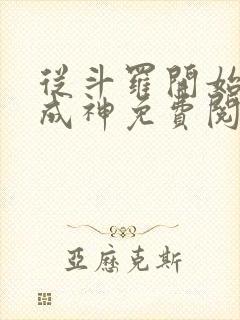 從斗羅開始
成神免費閱
亞歷克斯